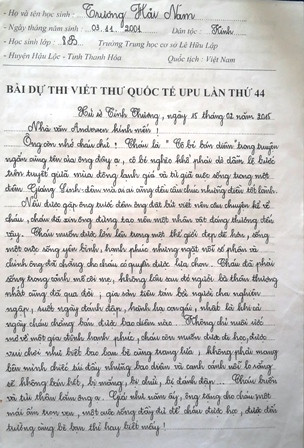 Họ và tên học sinh : Trương Hải Nam
- Ngày tháng năm sinh : 03.11.2001 Dân tộc : Kinh
- Học sinh lớp : 8B Trường Trung học cơ sở Lê Hữu Lập
- Huyện Hậu Lộc - Tỉnh Thanh Hóa Quốc tịch : Việt Nam
BÀI DỰ THI VIẾT THƯ QUỐC TẾ UPU LẦN THỨ 44
Xứ sở Tình Thương, ngày 15 tháng 02 năm 2015
Nhà văn Andersen kính mến !
Ông còn nhớ cháu chứ ? Cháu là " Cô bé bán diêm" trong truyện
ngắn cùng tên của ông đây ạ, cô bé nghèo khổ phải đi dầm lê bước
trên tuyết giữa mùa đông lạnh giá và từ giã cuộc sống trong một
đêm Giáng Sinh - đêm mà ai ai cũng đều cầu chúc những điều tốt lành.
Nếu được gặp ông trước đêm ông đặt bút viết nên câu chuyện kể về
cháu, cháu đã xin ông đừng tạo nên một nhân vật đáng thương đến
vậy. Cháu muốn được lớn lên trong một thế giới đẹp đẽ hơn, sống
một cuộc sống yên bình, hạnh phúc nhưng ngặt nỗi số phận và
chính ông đã chẳng cho cháu có quyền được lựa chọn. Cháu đã phải
sống trong cảnh mồ côi mẹ, không lâu sau đó người bà thân thương
nhất cũng đã qua đời , gia sản tiêu tán bố người cha nghiện
ngập, suốt ngày đánh đập, hành hạ con gái, nhất là khi cả
ngày cháu chẳng bán được bao diêm nào . Không chỉ nuôi ước
mơ về một gia đình hạnh phúc, cháu còn muốn được đi học, được
vui chơi như biết bao bạn bè cùng trang lứa , không phải mang
bên mình chiếc túi đầy những bao diêm và canh cánh nỗi lo sáng
sẽ không bán hết, bị mắng, bị chửi, bị đánh đập ... Cháu buồn
và tủi thân lắm ông ạ. Giá như năm ấy, ông cũng cho cháu một
mái ấm trọn vẹn , một cuộc sống đầy đủ để cháu được học , được đến
trường cùng bè bạn thì hay biết mấy !